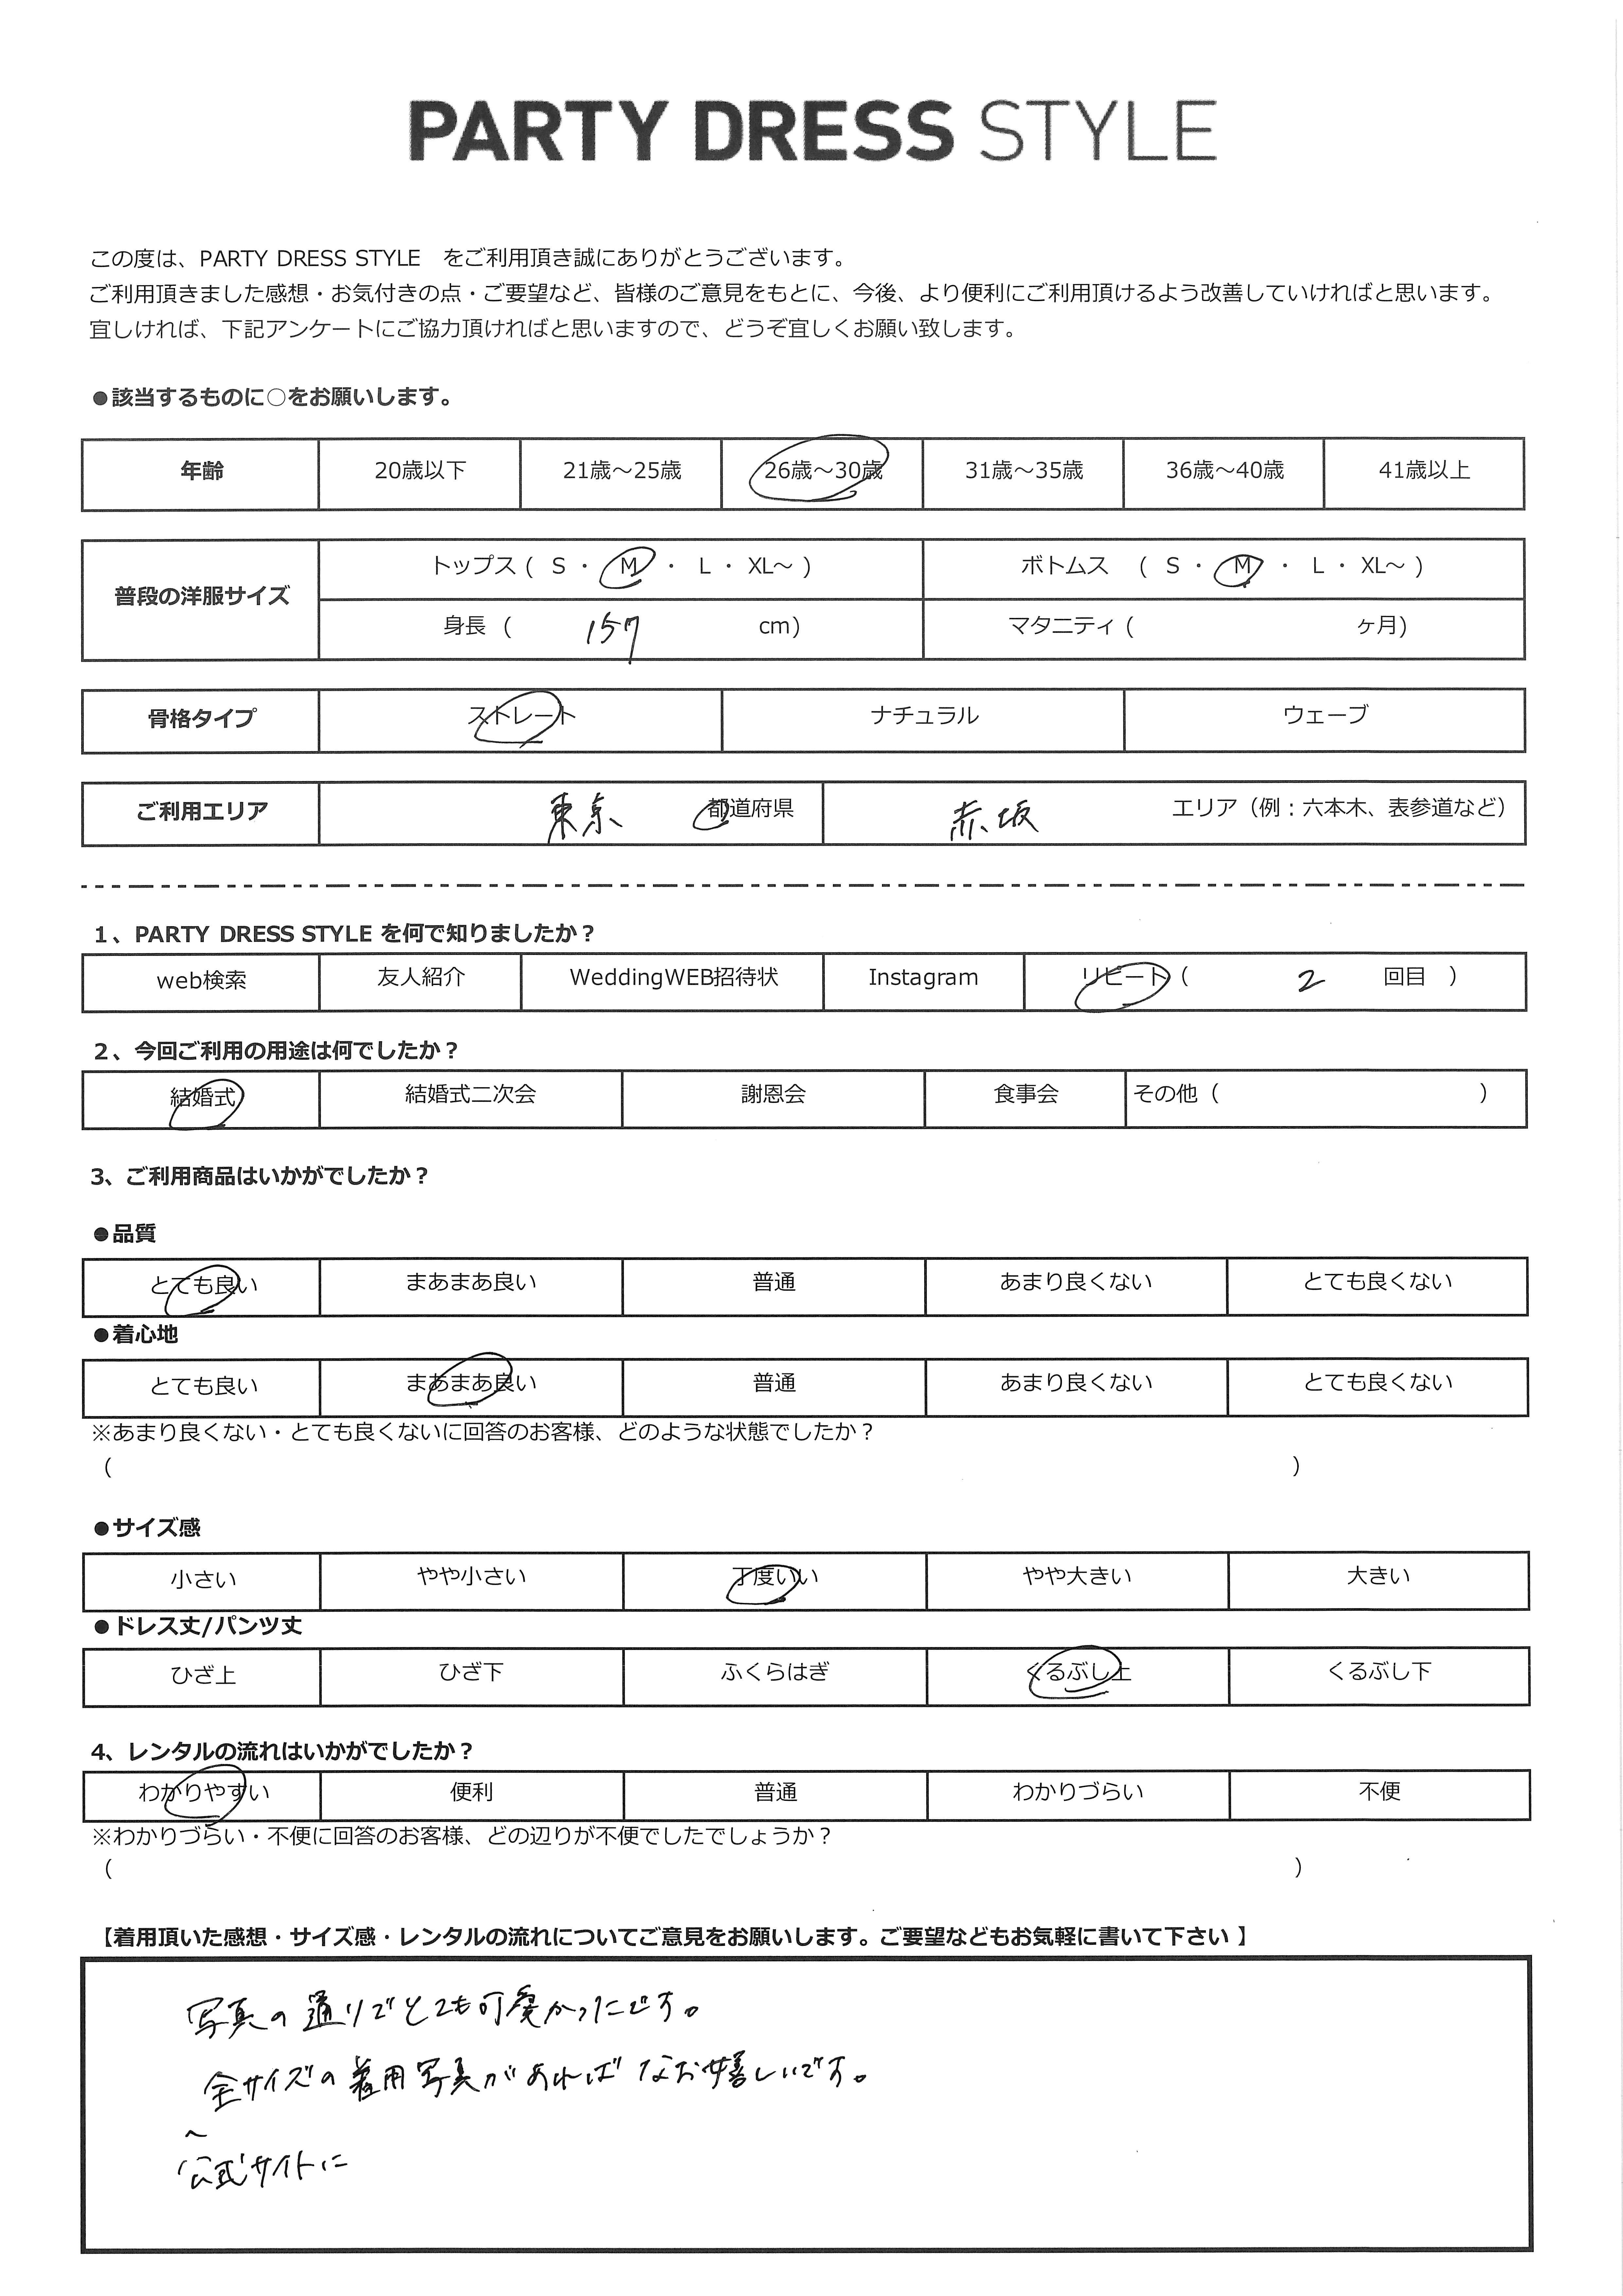 PARTY DRESS STYLE
この度は、PARTY DRESS STYLE　をご利用頂き誠にありがとうございます。
ご利用頂きました感想・お気付きの点・ご要望など、皆様のご意見をもとに、今後、より便利にご利用頂けるよう改善していければと思います。
宜しければ、下記アンケートにご協力頂ければと思いますので、どうぞ宜しくお願い致します。
●該当するものに○をお願いします。
年齢 20歳以下 21歳～25歳 26歳～30歳 31歳～35歳 36歳～40歳 41歳以上
普段の洋服サイズ トップス ( S ・ M ・ L ・ XL～ ) ボトムス ( S ・ M ・ L ・ XL～ )
身長 ( 157 cm) マタニティ ( ヶ月)
骨格タイプ ストレート ナチュラル ウェーブ
ご利用エリア 東京 都道府県 赤坂 エリア（例：六本木、表参道など）
1、PARTY DRESS STYLE を何で知りましたか？
web検索 友人紹介 WeddingWEB招待状 Instagram リピート ( 2 回目 )
2、今回ご利用の用途は何でしたか？
結婚式 結婚式二次会 謝恩会 食事会 その他 ( )
3、ご利用商品はいかがでしたか？
●品質
とても良い まあまあ良い 普通 あまり良くない とても良くない
●着心地
とても良い まあまあ良い 普通 あまり良くない とても良くない
※あまり良くない・とても良くないに回答のお客様、どのような状態でしたか？
( )
●サイズ感
小さい やや小さい 丁度いい やや大きい 大きい
●ドレス丈/パンツ丈
ひざ上 ひざ下 ふくらはぎ くるぶし上 くるぶし下
4、レンタルの流れはいかがでしたか？
わかりやすい 便利 普通 わかりづらい 不便
※わかりづらい・不便に回答のお客様、どの辺りが不便でしたでしょうか？
( )
【着用頂いた感想・サイズ感・レンタルの流れについてご意見をお願いします。ご要望などもお気軽に書いて下さい 】
写真の通りでとても可愛かったです。
全サイズの着用写真があればなお嬉しいです。
公式サイトに